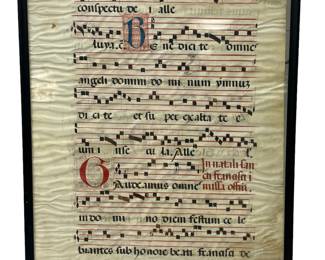 conspectu de i alle
luya. ℣. Bene dici te omne
angeli domini do mi num ymnuz
di ci te et su per exalta te e
um i nse cu la. Alle
Gaudeamus omne In natali san cti francisci missa offiū.
indo mi no diem festum ce le
brantes sub honore beati francisci de